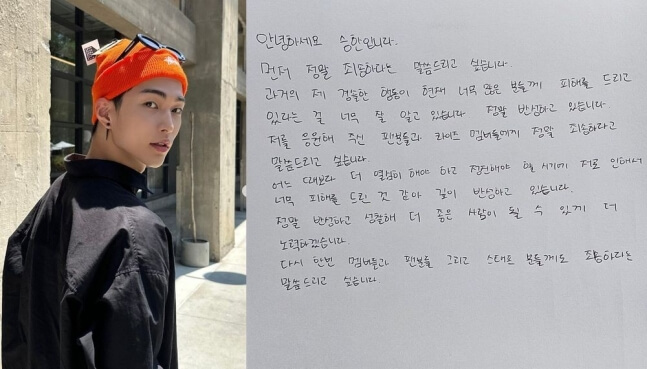 안녕하세요 승한입니다.
먼저 정말 죄송하다는 말씀드리고 싶습니다.
과거의 제 경솔한 행동이 현재 너무 많은 분들께 피해를 드리고
있다는 걸 너무 잘 알고 있습니다 정말 반성하고 있습니다.
저를 응원해 주신 팬분들과 라이즈 멤버들에게 정말 죄송하다고
말씀드리고 싶습니다.
어느 때보다 더 열심히 해야 하고 집중해야 할 시기에 저로 인해서
너무 피해를 드린 것 같아 깊이 반성하고 있습니다.
정말 반성하고 성찰해 더 좋은 사람이 될 수 있게 더
노력하겠습니다
다시 한번 멤버들과 팬분들 그리고 스태프 분들께도 죄송하다는
말씀드리고 싶습니다.